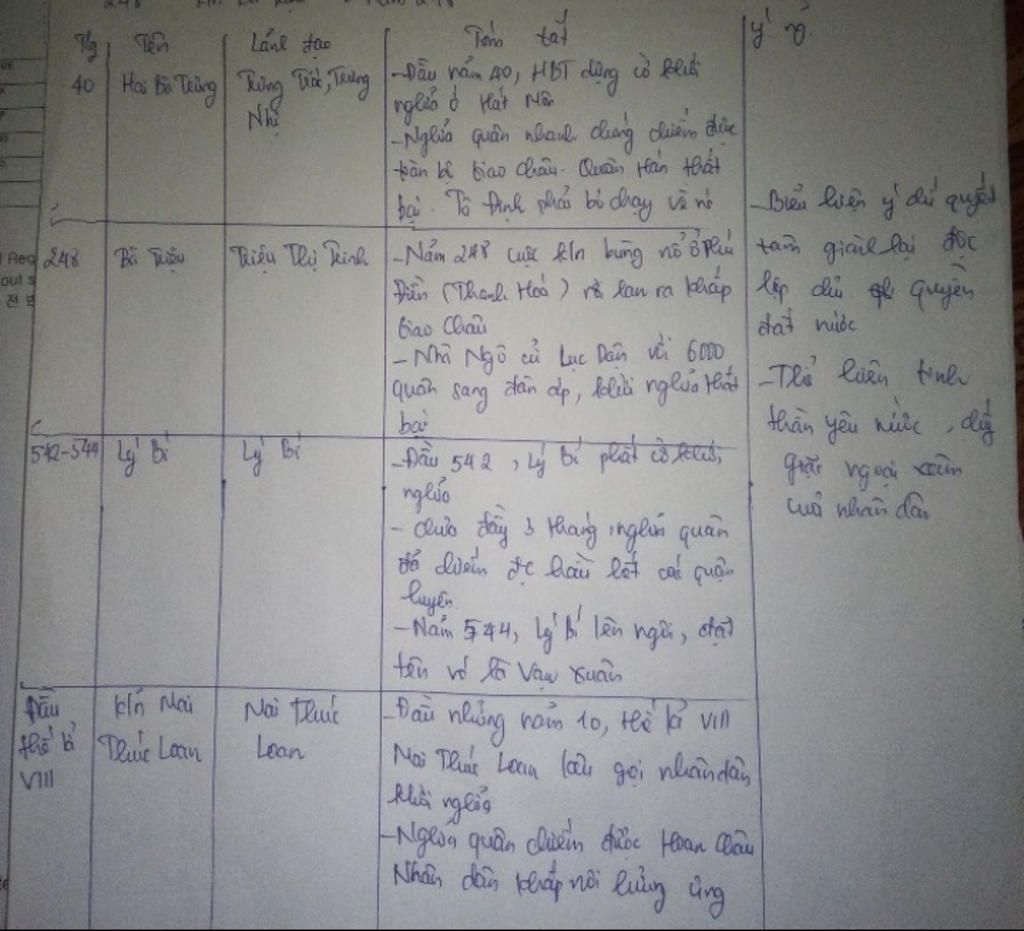 Tg Tên Lãnh đạo Tóm tắt ý n
40 Hai Bà Trưng Trưng Trắc, Trưng
Nhị
-Đầu năm 40, HBT dựng cờ khởi
nghĩa ở Hát Môn
-Nghĩa quân nhanh chóng chiếm được
toàn bộ Giao Châu. Quân Hán thất
bại. Tô Định phải bỏ chạy về
248 Bà Triệu Triệu Thị Trinh
-Năm 248 cuộc k/n bùng nổ ở Phú
Điền (Thanh Hoá) rồi lan ra khắp
Giao Châu
-Nhà Ngô cử Lục Dận với 6000
quân sang đàn áp, khởi nghĩa thất
bại
542-544 Lý Bí Lý Bí
-Đầu 542, Lý Bí phất cờ khởi
nghĩa
- chưa đầy 3 tháng, nghĩa quân
đã chiếm đc hầu hết các quận
huyện.
-Năm 544, Lý Bí lên ngôi, đặt
tên là Vạn Xuân
Đầu
thế kỉ
VIII
k/n Mai
Thúc Loan
Mai Thúc
Loan
-Đầu những năm 10, thế kỉ VIII
Mai Thúc Loan kêu gọi nhân dân
khởi nghĩa
-Nghĩa quân chiếm được Hoan Châu
Nhân dân khắp nơi hưởng ứng
-Biểu hiện ý chí quyết
tâm giành lại độc
lập chủ quyền
đất nước
-Thể hiện tinh
thần yêu nước,
giặc ngoại xâm
của nhân dân